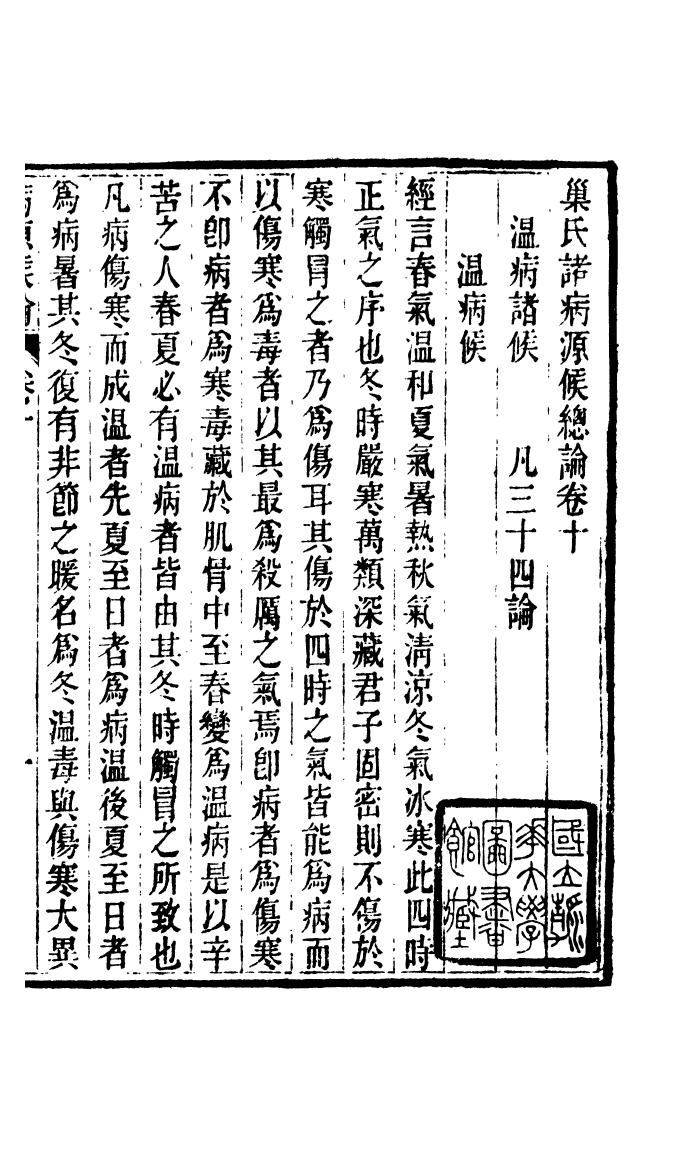 巢氏諸病源候總論卷十
溫病諸候　　凡三十四論
溫病候
經言春氣溫和夏氣暑熱秋氣清涼冬氣冰寒此四時
正氣之序也冬時嚴寒萬類深藏君子固密則不傷於
寒觸冒之者乃爲傷耳其傷於四時之氣皆能爲病而
以傷寒爲毒者以其最爲殺厲之氣焉卽病者爲傷寒
不卽病者爲寒毒藏於肌骨中至春變爲溫病是以辛
苦之人春夏必有溫病者皆由其冬時觸冒之所致也
凡病傷寒而成溫者先夏至日者爲病溫後夏至日者
爲病暑其冬復有非節之暖名爲冬溫毒與傷寒大異
國立
大學
圖書
館